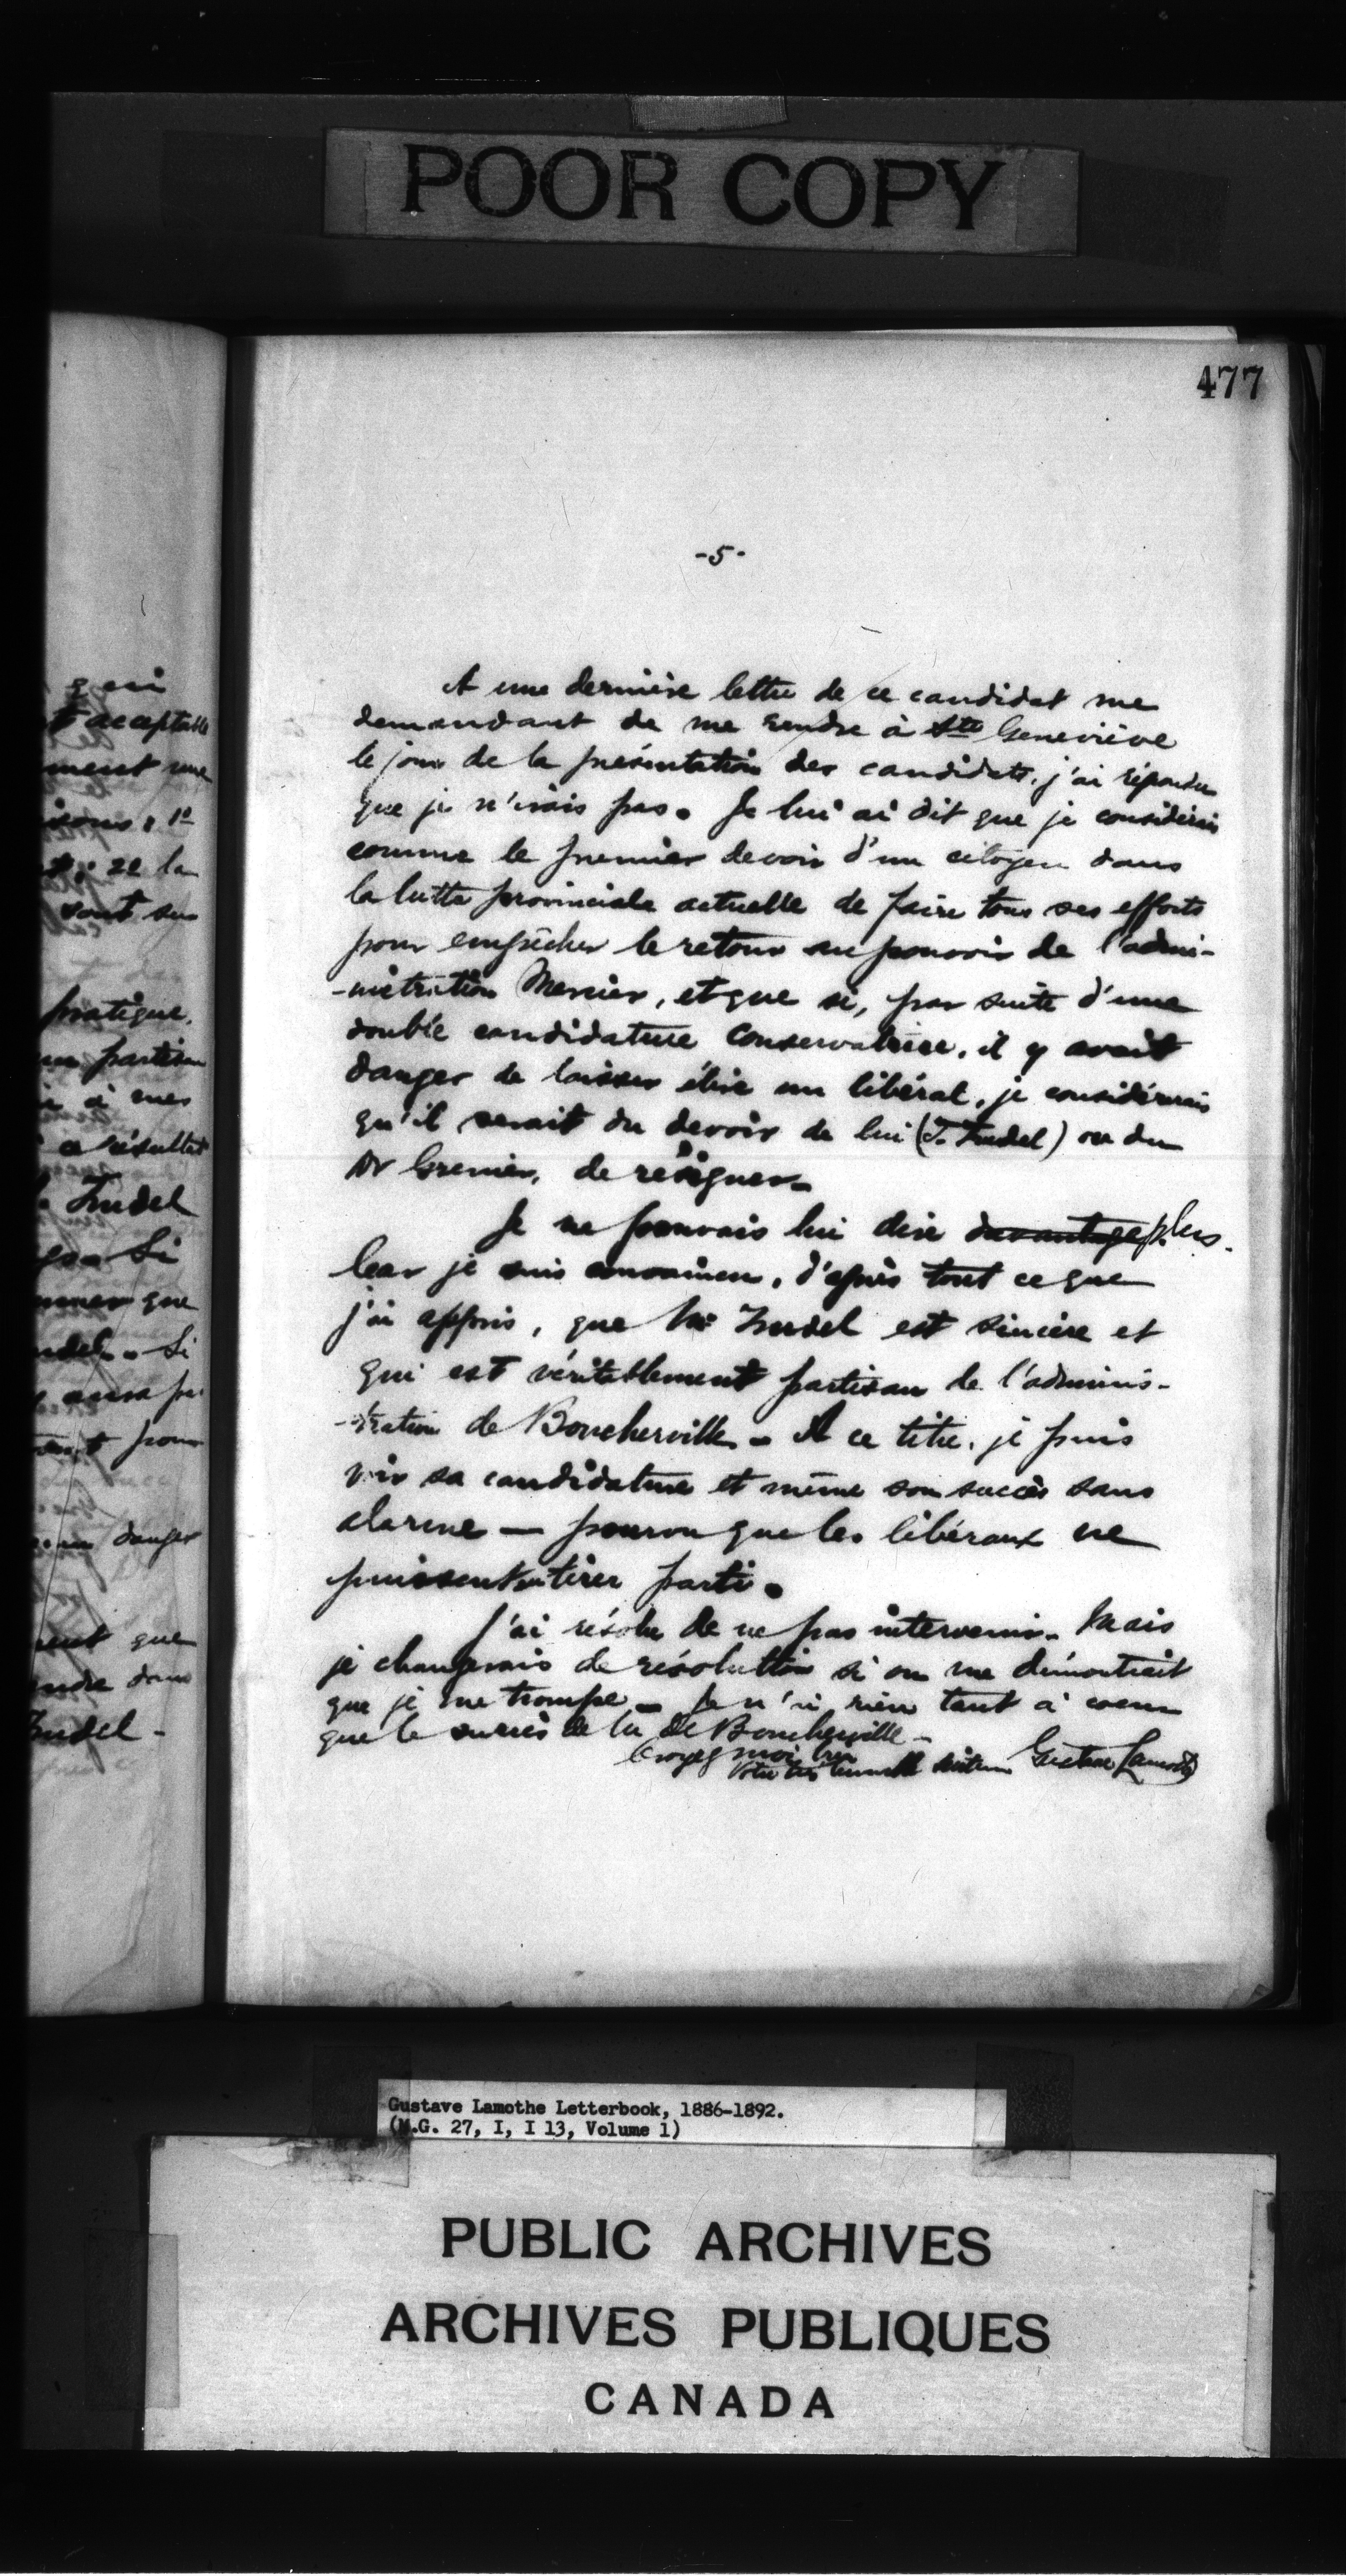 POOR COPY
477
-5-
A une dernière lettre de ce candidat me
demandant de me rendre à Ste Geneviève
le jour de la présentation des candidats, j'ai répondu
que je n'irais pas. Je lui ai dit que je considérais
comme le premier devoir d'un citoyen dans
la lutte provinciale actuelle de faire tous ses efforts
pour empêcher le retour au pouvoir de l'admi-
-nistration Mercier, et que si, par suite d'une
double candidature conservatrice, il y avait
danger de laisser élire un libéral, je considérerais
qu'il serait du devoir de lui (J. Trudel) ou du
Dr Grenier, de résigner.
Je ne pouvais lui dire davantage plus.
Car je suis convaincu, d'après tout ce que
j'ai appris, que Mr Trudel est sincère et
qui est véritablement partisan de l'adminis-
-tration de Boucherville. A ce titre, je puis
voir sa candidature et même son succès sans
alarme — pourvu que les libéraux ne
puissent en tirer parti.
J'ai résolu de ne pas intervenir. Mais
je changerais de résolution si on me démontrait
que je me trompe. Je n'ai rien tant à coeur
que le succès de la de Boucherville.
Croyez moi
Votre très humble serviteur Gustave Lamothe
qui
acceptable
ment une
1º
2e la
sont su
pratique.
partisan
à mes
résultat
Trudel
Si
que
Si
aura pu
pour
danger
que
dans
Trudel -
Gustave Lamothe Letterbook, 1886-1892.
(M.G. 27, I, I 13, Volume 1)
PUBLIC ARCHIVES
ARCHIVES PUBLIQUES
CANADA